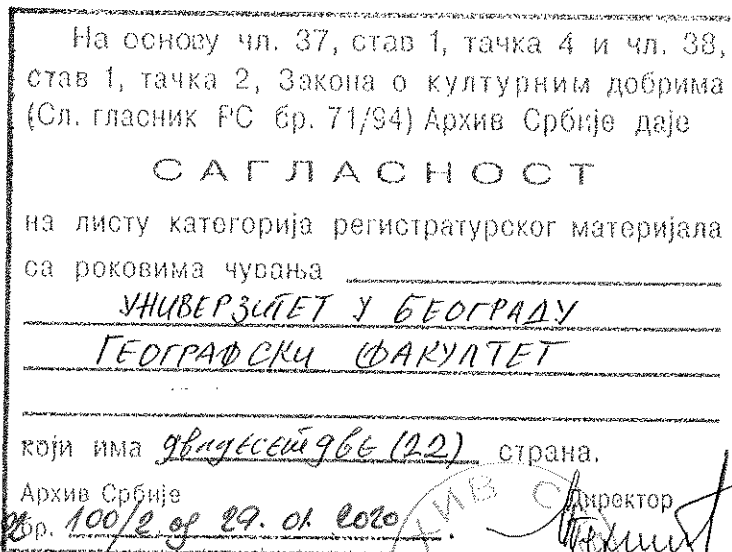 На основу чл. 37, став 1, тачка 4 и чл. 38,
став 1, тачка 2, Закона о културним добрима
(Сл. гласник РС бр. 71/94) Архив Србије даје
САГЛАСНОСТ
на листу категорија регистратурског материјала
са роковима чувања
УНИВЕРЗИТЕТ У БЕОГРАДУ
ГЕОГРАФСКИ ФАКУЛТЕТ
који има двадесет две (22) страна.
Архив Србије
Директор
бр. 100/2 од 29. 01. 2020.